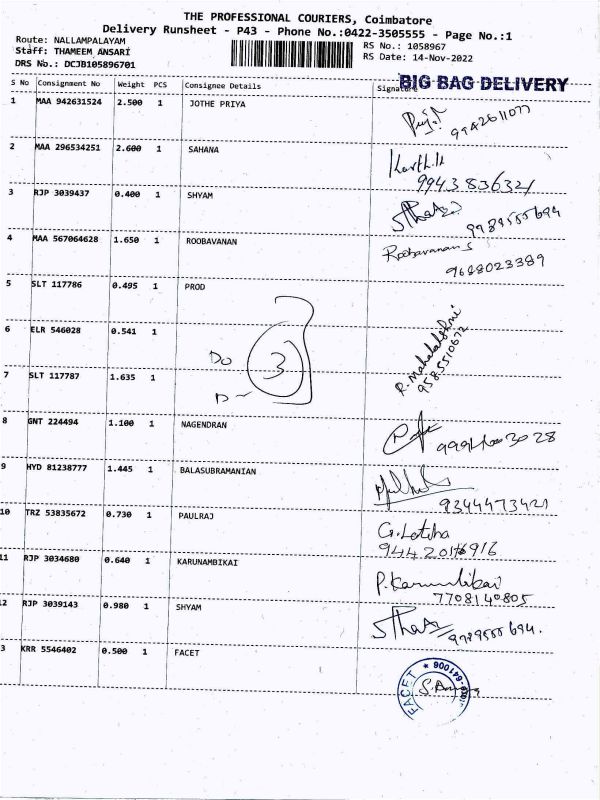 THE PROFESSIONAL COURIERS, Coimbatore
Delivery Runsheet - P43 - Phone No.:0422-3505555 - Page No.:1
Route: NALLAMPALAYAM
Staff: THAMEEM ANSARI
DRS No.: DCJB105896701
RS No.: 1058967
RS Date: 14-Nov-2022
BIG BAG DELIVERY
S No Consignment No Weight PCS Consignee Details Signature
1 MAA 942631524 2.500 1 JOTHE PRIYA
2 MAA 296534251 2.600 1 SAHANA Karthik
9943836321
3 RJP 3039437 0.400 1 SHYAM 9989555694
4 MAA 567064628 1.650 1 ROOBAVANAN Roobavanan S
9688023389
5 SLT 117786 0.495 1 PROD
6 ELR 546028 0.541 1 Do 3 R. Mahalakshmi
9585510672
7 SLT 117787 1.635 1 D-
8 GNT 224494 1.100 1 NAGENDRAN
9 HYD 81238777 1.445 1 BALASUBRAMANIAN
9344473421
10 TRZ 53835672 0.730 1 PAULRAJ G. Latha
11 RJP 3034680 0.640 1 KARUNAMBIKAI P. Karunambikai
7708140805
12 RJP 3039143 0.980 1 SHYAM 9989555694.
3 KRR 5546402 0.500 1 FACET
FACET